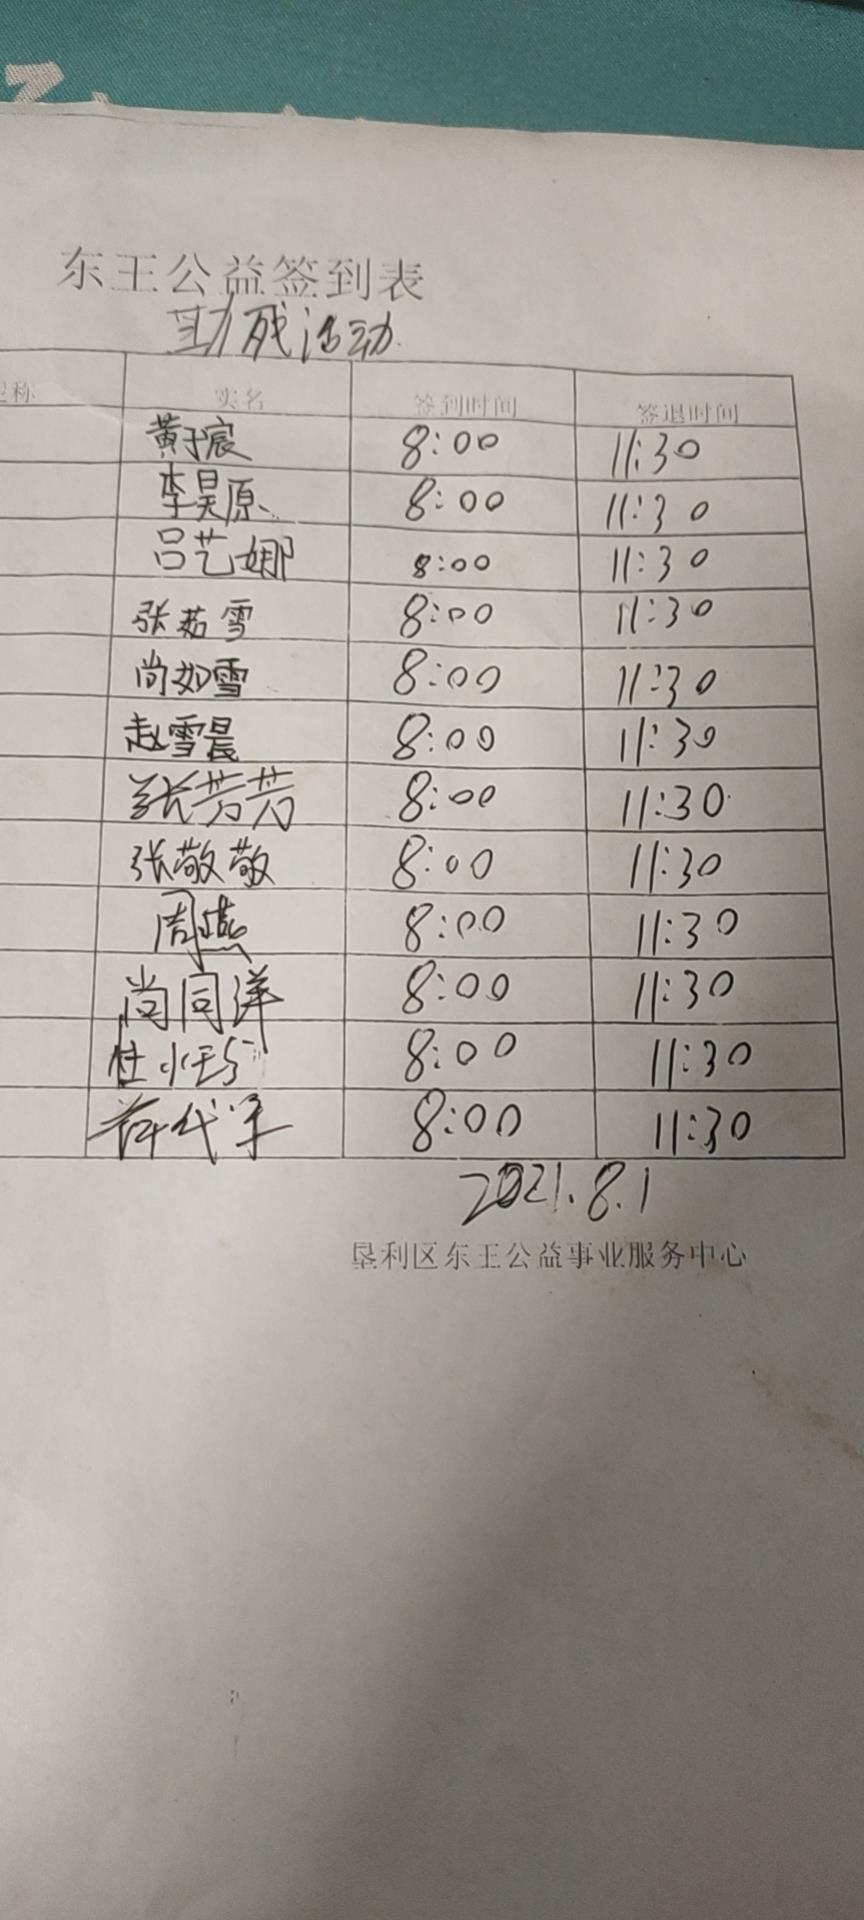 东王公益签到表
助残活动
称 实名 签到时间 签退时间
黄于宸 8:00 11:30
李昊原 8:00 11:30
吕艺娜 8:00 11:30
张茹雪 8:00 11:30
尚如雪 8:00 11:30
赵雪晨 8:00 11:30
张芳芳 8:00 11:30
张敬敬 8:00 11:30
周燕 8:00 11:30
尚同洋 8:00 11:30
杜小 8:00 11:30
8:00 11:30
2021.8.1
垦利区东王公益事业服务中心